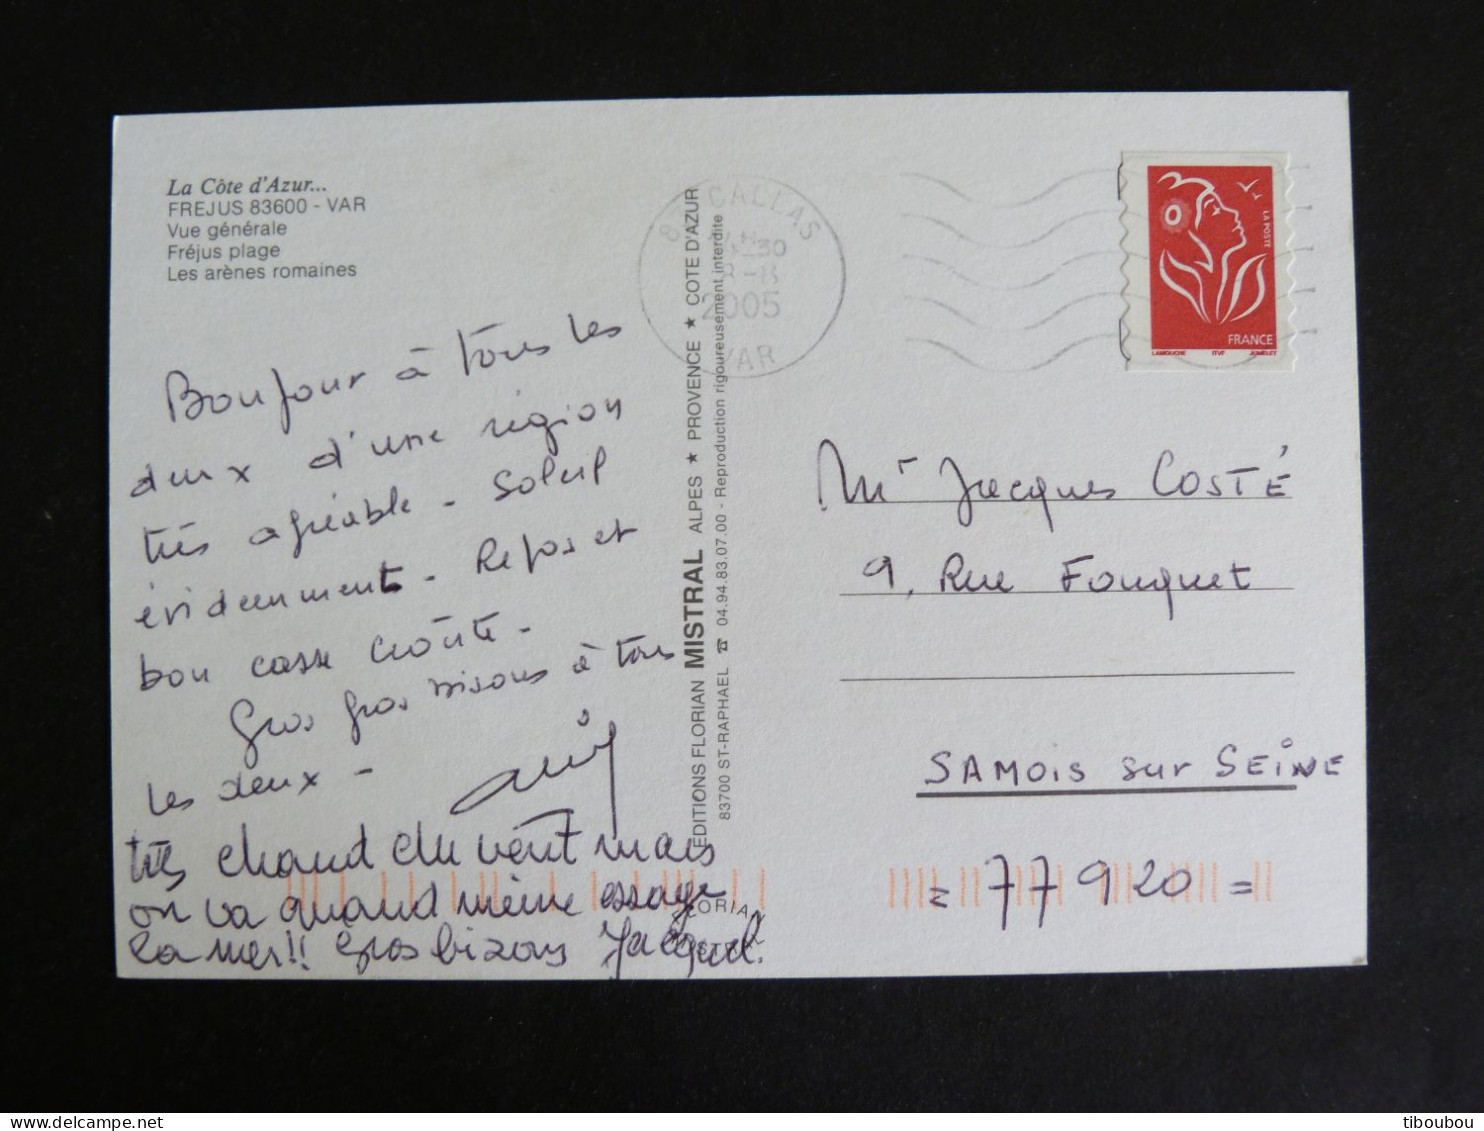 La Côte d'Azur...
FREJUS 83600 - VAR
Vue générale
Fréjus plage
Les arènes romaines
Bonjour à tous les
deux d'une région
très agréable - Soleil
évidemment - Repos et
bon casse croûte -
Gros gros bisous à tous
les deux -
très chaud du vent mais
on va quand même essayer
la mer!! Gros bizous
EDITIONS FLORIAN MISTRAL ALPES ★ PROVENCE ★ COTE D'AZUR
83700 ST-RAPHAEL ☎ 04.94.83.07.00 - Reproduction rigoureusement interdite
CALLAS
2005
VAR
LA POSTE
FRANCE
LAMOUCHE ITVF JUMELET
Mr Jacques COSTÉ
9, Rue Fouquet
SAMOIS sur SEINE
= 77920 =
tiboubou